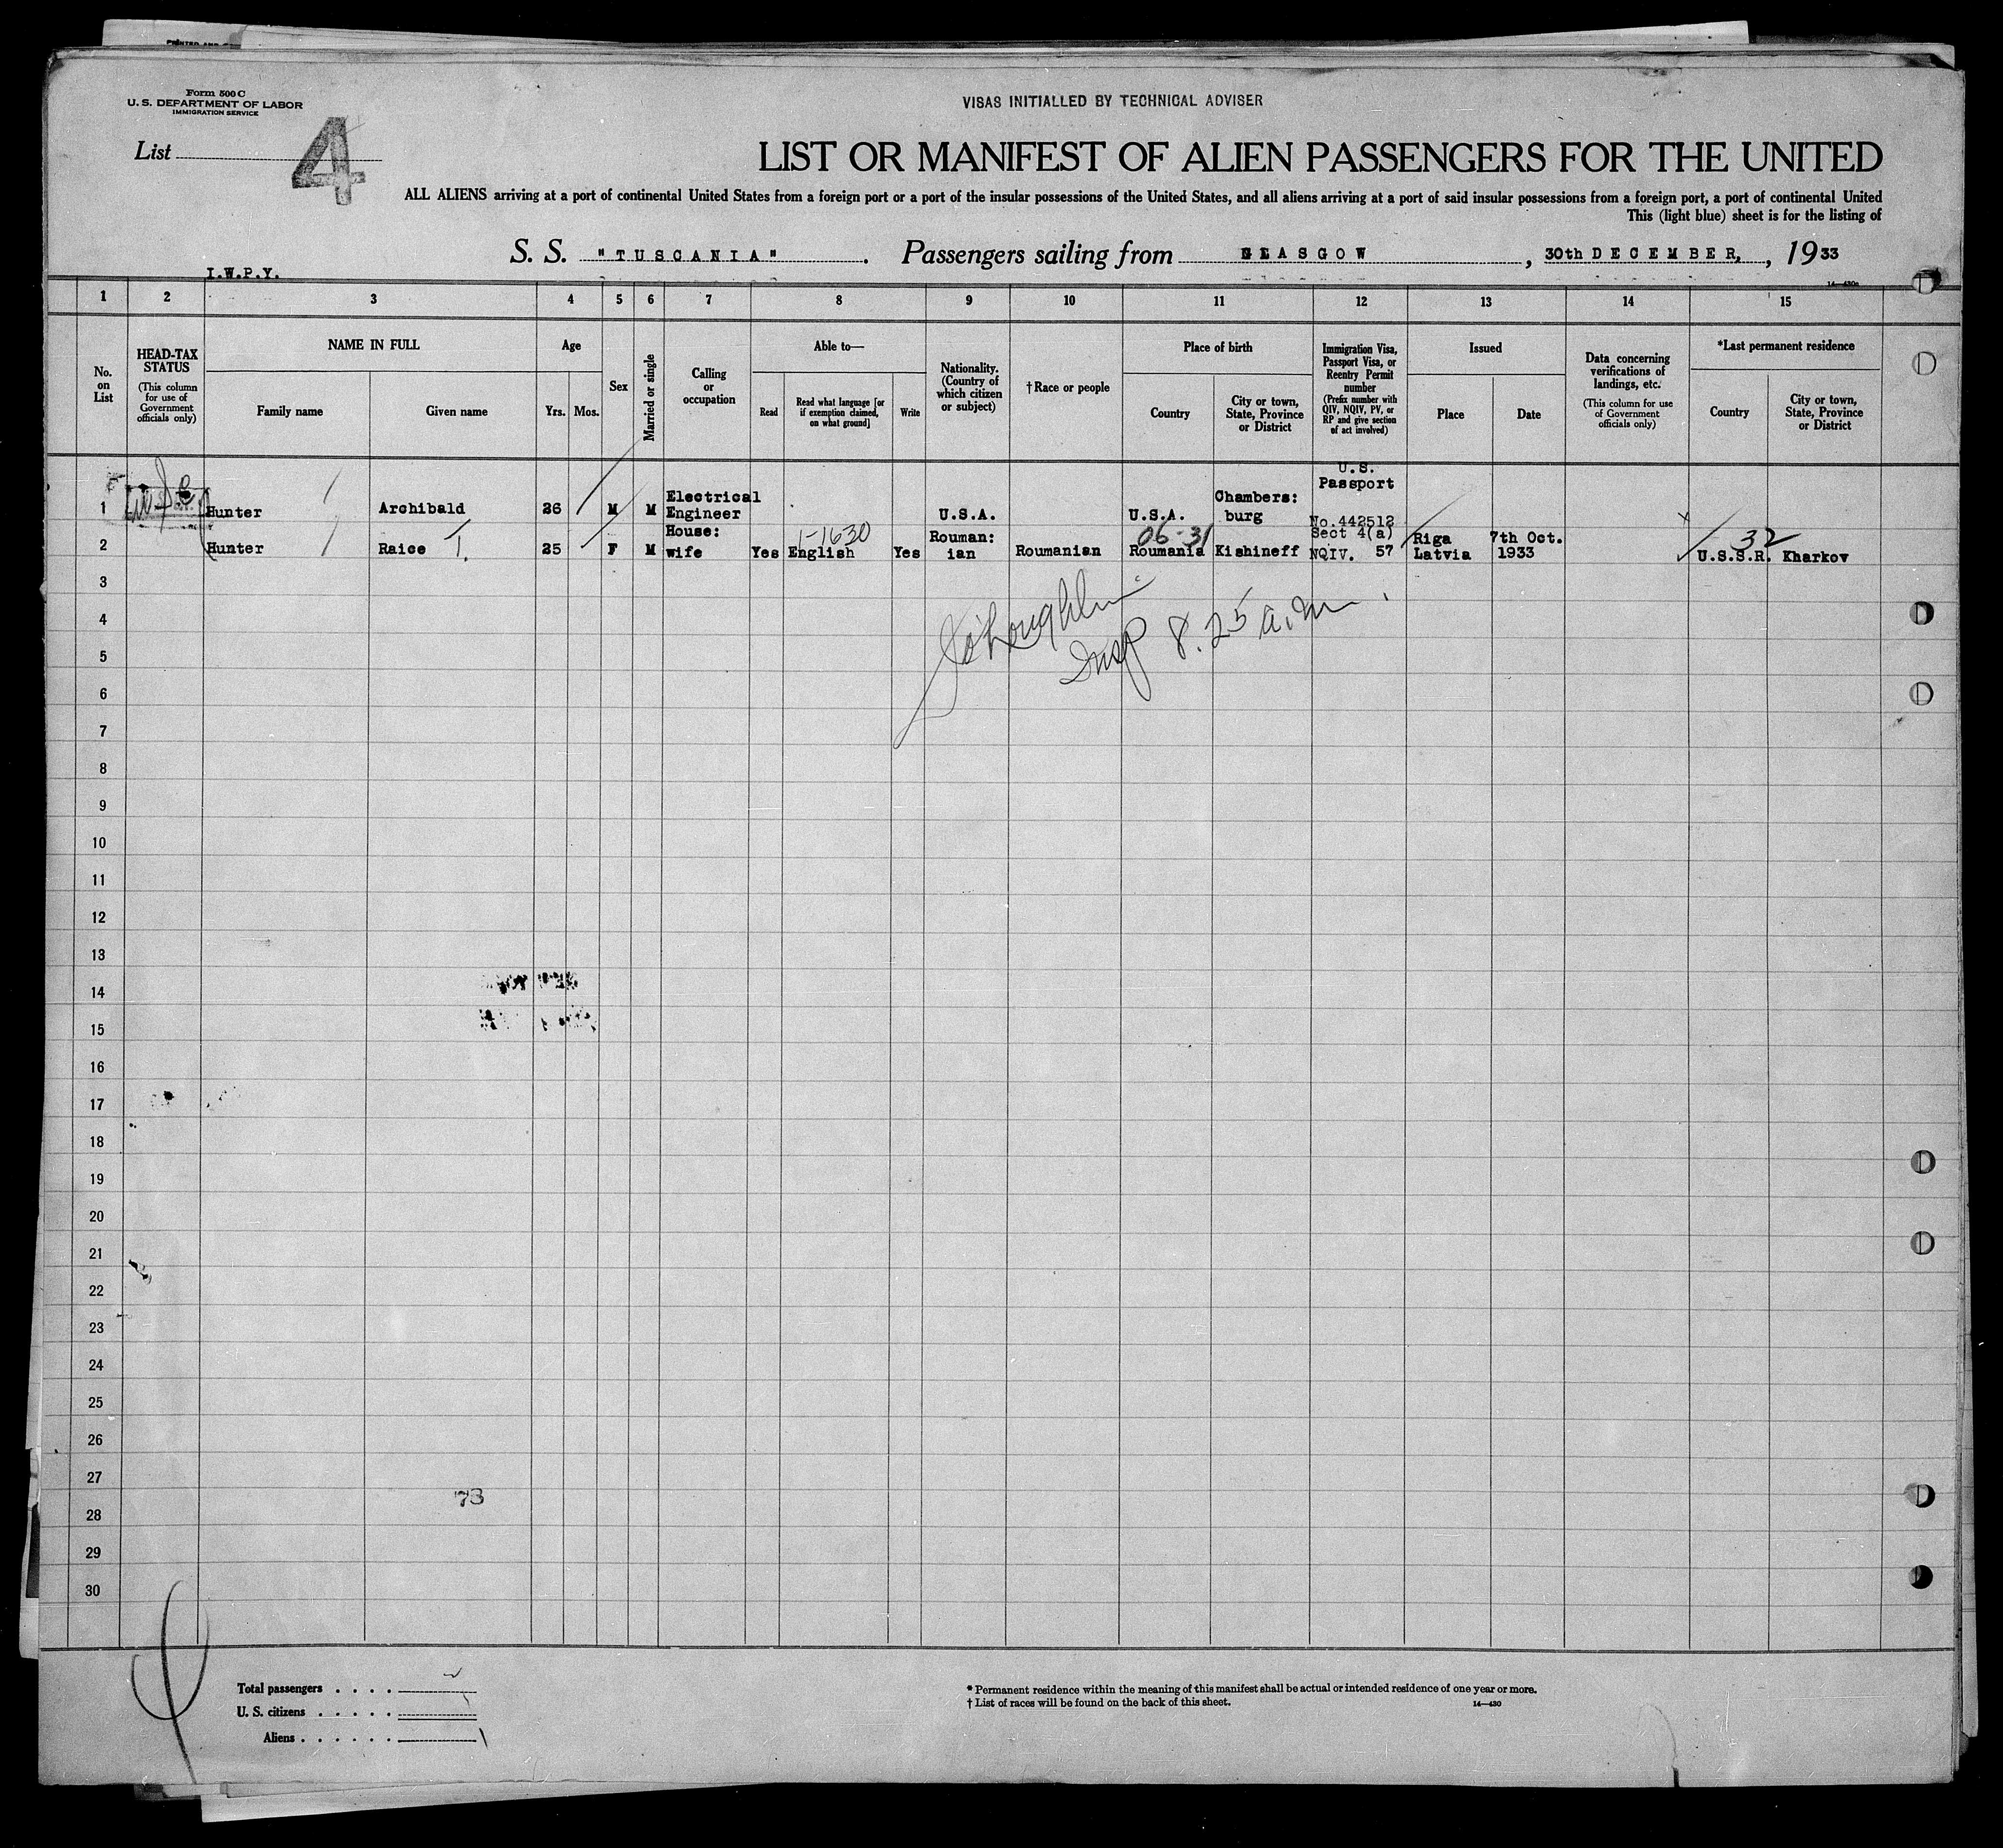 PRINTED AND
Form 500 C
U. S. DEPARTMENT OF LABOR
IMMIGRATION SERVICE
VISAS INITIALLED BY TECHNICAL ADVISER
List 4
LIST OR MANIFEST OF ALIEN PASSENGERS FOR THE UNITED
ALL ALIENS arriving at a port of continental United States from a foreign port or a port of the insular possessions of the United States, and all aliens arriving at a port of said insular possessions from a foreign port, a port of continental United
This (light blue) sheet is for the listing of
S. S. "TUSCANIA". Passengers sailing from GLASGOW, 30th DECEMBER, , 1933
I.W.P.Y.
14—430c
1 2 3 4 5 6 7 8 9 10 11 12 13 14 15
No. on List
HEAD-TAX STATUS
(This column for use of Government officials only)
NAME IN FULL
Family name
Given name
Age
Yrs. Mos.
Sex
Married or single
Calling or occupation
Able to—
Read
Read what language [or if exemption claimed, on what ground]
Write
Nationality. (Country of which citizen or subject)
†Race or people
Place of birth
Country
City or town, State, Province or District
Immigration Visa, Passport Visa, or Reentry Permit number
(Prefix number with QIV, NQIV, PV, or RP and give section of act involved)
Issued
Place
Date
Data concerning verifications of landings, etc.
(This column for use of Government officials only)
*Last permanent residence
Country
City or town, State, Province or District
1 Hunter Archibald 26 M M Electrical Engineer U.S.A. U.S.A. Chambers: burg U.S. Passport No.442512
1-1630 06-31 32
2 Hunter Raice 25 F M House: wife Yes English Yes Rouman: ian Roumanian Roumania Kishineff Sect 4(a) NQIV. 57 Riga Latvia 7th Oct. 1933 U.S.S.R. Kharkov
3
4
O'Loughlin
Insp 8.25 a.m.
5
6
7
8
9
10
11
12
13
14
15
16
17
18
19
20
21
22
23
24
25
26
27
73
28
29
30
Total passengers . . . .
U. S. citizens . . . . .
Aliens . . . . . .
* Permanent residence within the meaning of this manifest shall be actual or intended residence of one year or more.
† List of races will be found on the back of this sheet.
14—430